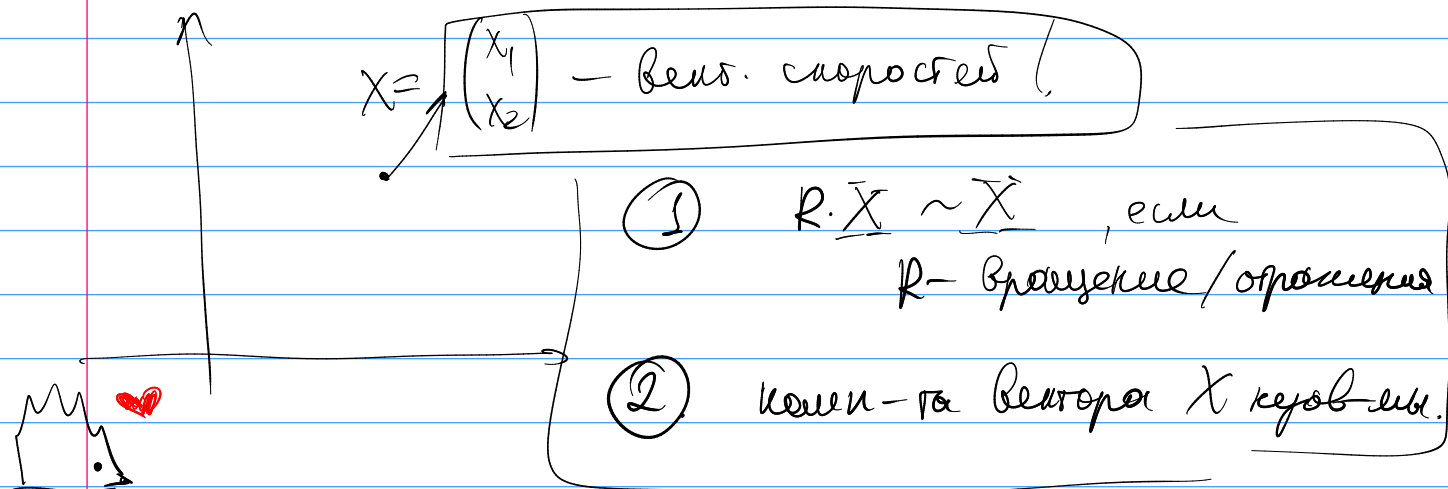 X = (x₁ x₂) – вект. скоростей!
① R·X̄ ~ X̄, если
R – вращение/отражения
② комп-та вектора X незав-мы.